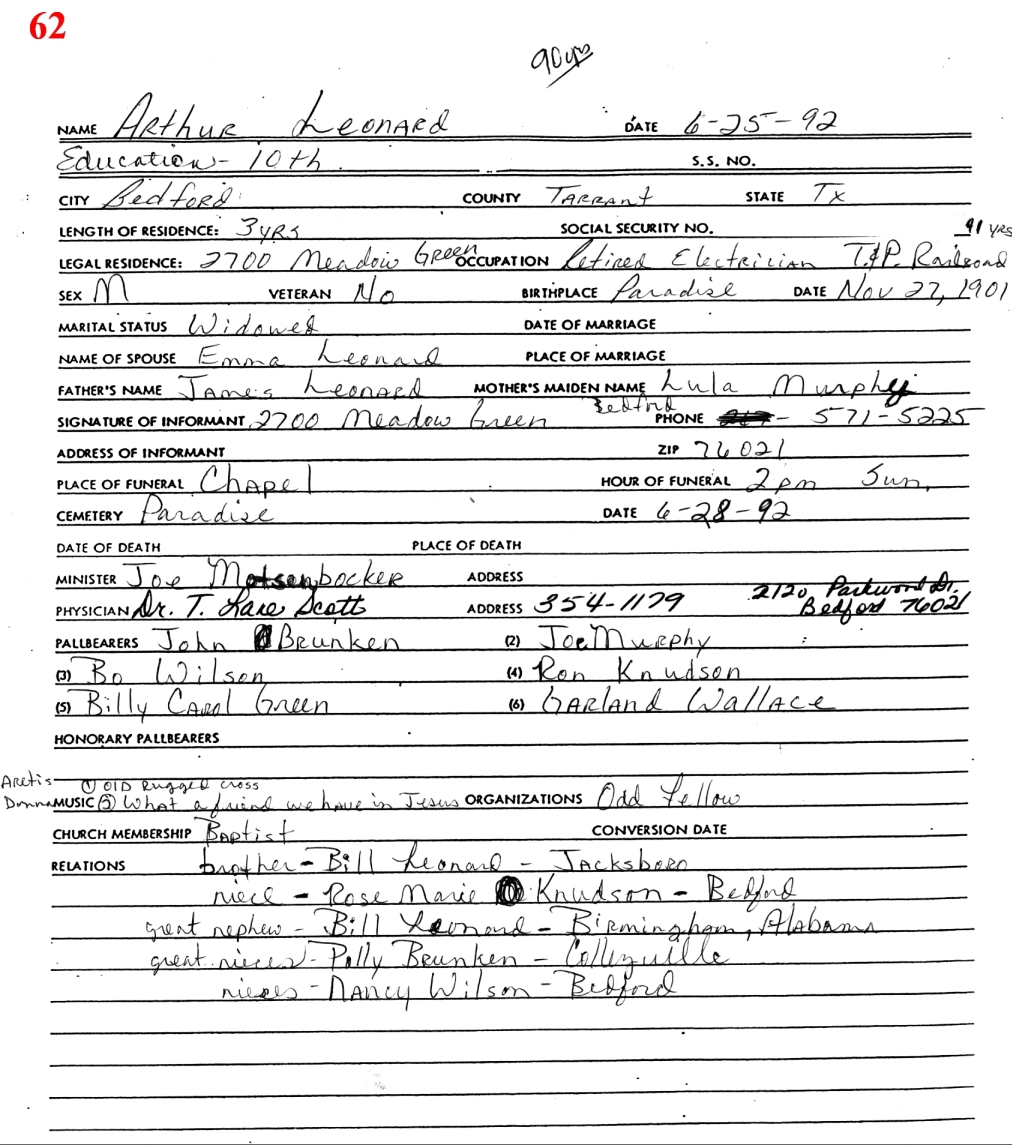 62
90 yrs
NAME Arthur Leonard DATE 6-25-92
Education - 10th S.S. NO.
CITY Bedford COUNTY Tarrant STATE Tx
LENGTH OF RESIDENCE: 3 yrs SOCIAL SECURITY NO. 41 yrs
LEGAL RESIDENCE: 2700 Meadow Green OCCUPATION Retired Electrician T.&P. Railroad
SEX M VETERAN No BIRTHPLACE Paradise DATE Nov 27, 1901
MARITAL STATUS Widowed DATE OF MARRIAGE
NAME OF SPOUSE Emma Leonard PLACE OF MARRIAGE
FATHER'S NAME James Leonard MOTHER'S MAIDEN NAME Lula Murphy
SIGNATURE OF INFORMANT 2700 Meadow Green Bedford PHONE - 571-5225
ADDRESS OF INFORMANT ZIP 76021
PLACE OF FUNERAL Chapel HOUR OF FUNERAL 2 pm Sun.
CEMETERY Paradise DATE 6-28-92
DATE OF DEATH PLACE OF DEATH
MINISTER Joe Motsenbocker ADDRESS
PHYSICIAN Dr. T. Lane Scott ADDRESS 354-1179 2120 Parkwood Dr. Bedford 76021
PALLBEARERS John Brunken (2) Joe Murphy
(3) Bo Wilson (4) Ron Knudson
(5) Billy Carol Green (6) Garland Wallace
HONORARY PALLBEARERS
Aretis ① Old Rugged Cross
Donna MUSIC ② What a friend we have in Jesus ORGANIZATIONS Odd Fellow
CHURCH MEMBERSHIP Baptist CONVERSION DATE
RELATIONS brother - Bill Leonard - Jacksboro
niece - Rose Marie Knudson - Bedford
great nephew - Bill Leonard - Birmingham, Alabama
great nieces - Polly Brunken - Colleyville
nieces - Nancy Wilson - Bedford